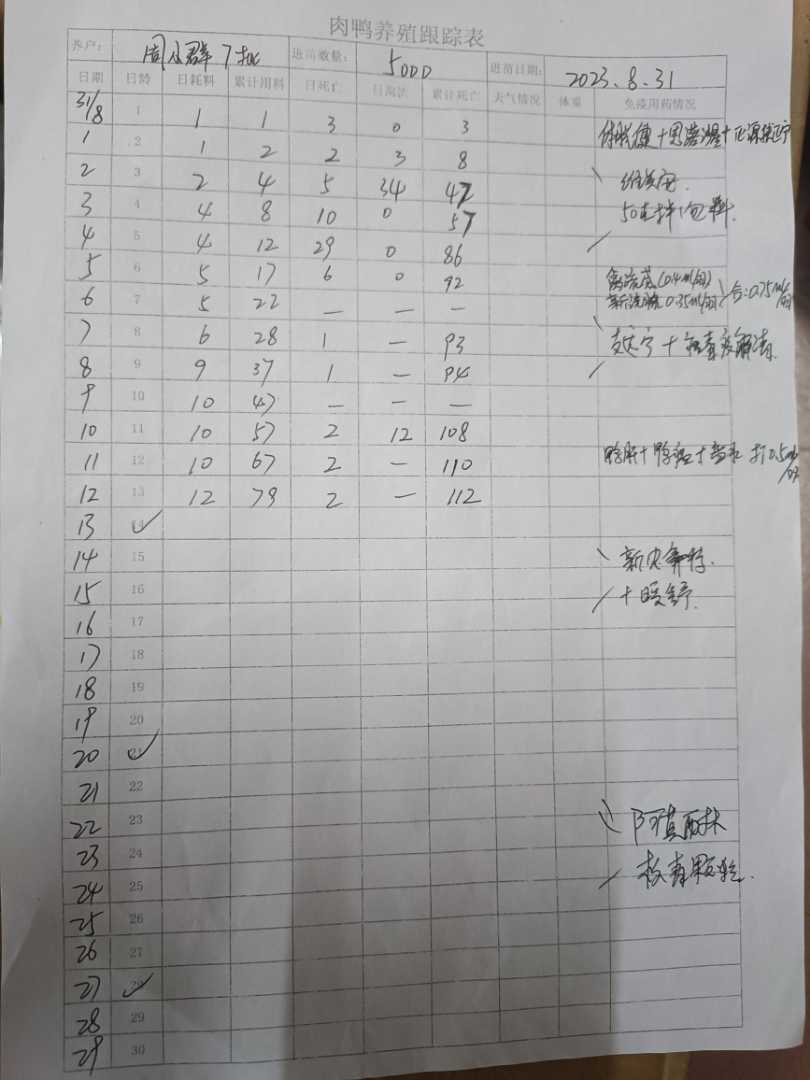 肉鸭养殖跟踪表
养户： 周小群7批 进苗数量： 5000 进苗日期： 2023.8.31
日期 日龄 日耗料 累计用料 日死亡 日淘汰 累计死亡 天气情况 体重 免疫用药情况
31/8 1 1 1 3 0 3
1 2 1 2 2 3 8
2 3 2 4 5 34 47
3 4 4 8 10 0 57 50克拌1包料.
4 5 4 12 29 0 86
5 6 5 17 6 0 92 (0.4ml/羽)
6 7 5 22 — — — 0.35ml/羽 合:0.75ml/羽
7 8 6 28 1 — 93
8 9 9 37 1 — 94
9 10 10 47 — — —
10 11 10 57 2 12 108
11 12 10 67 2 — 110 打0.5ml/羽
12 13 12 79 2 — 112
13 14 ✓
14 15
15 16
16 17
17 18
18 19
19 20
20 21 ✓
21 22
22 23 阿莫
23 24 板青颗粒.
24 25
25 26
26 27
27 28 ✓
28 29
29 30